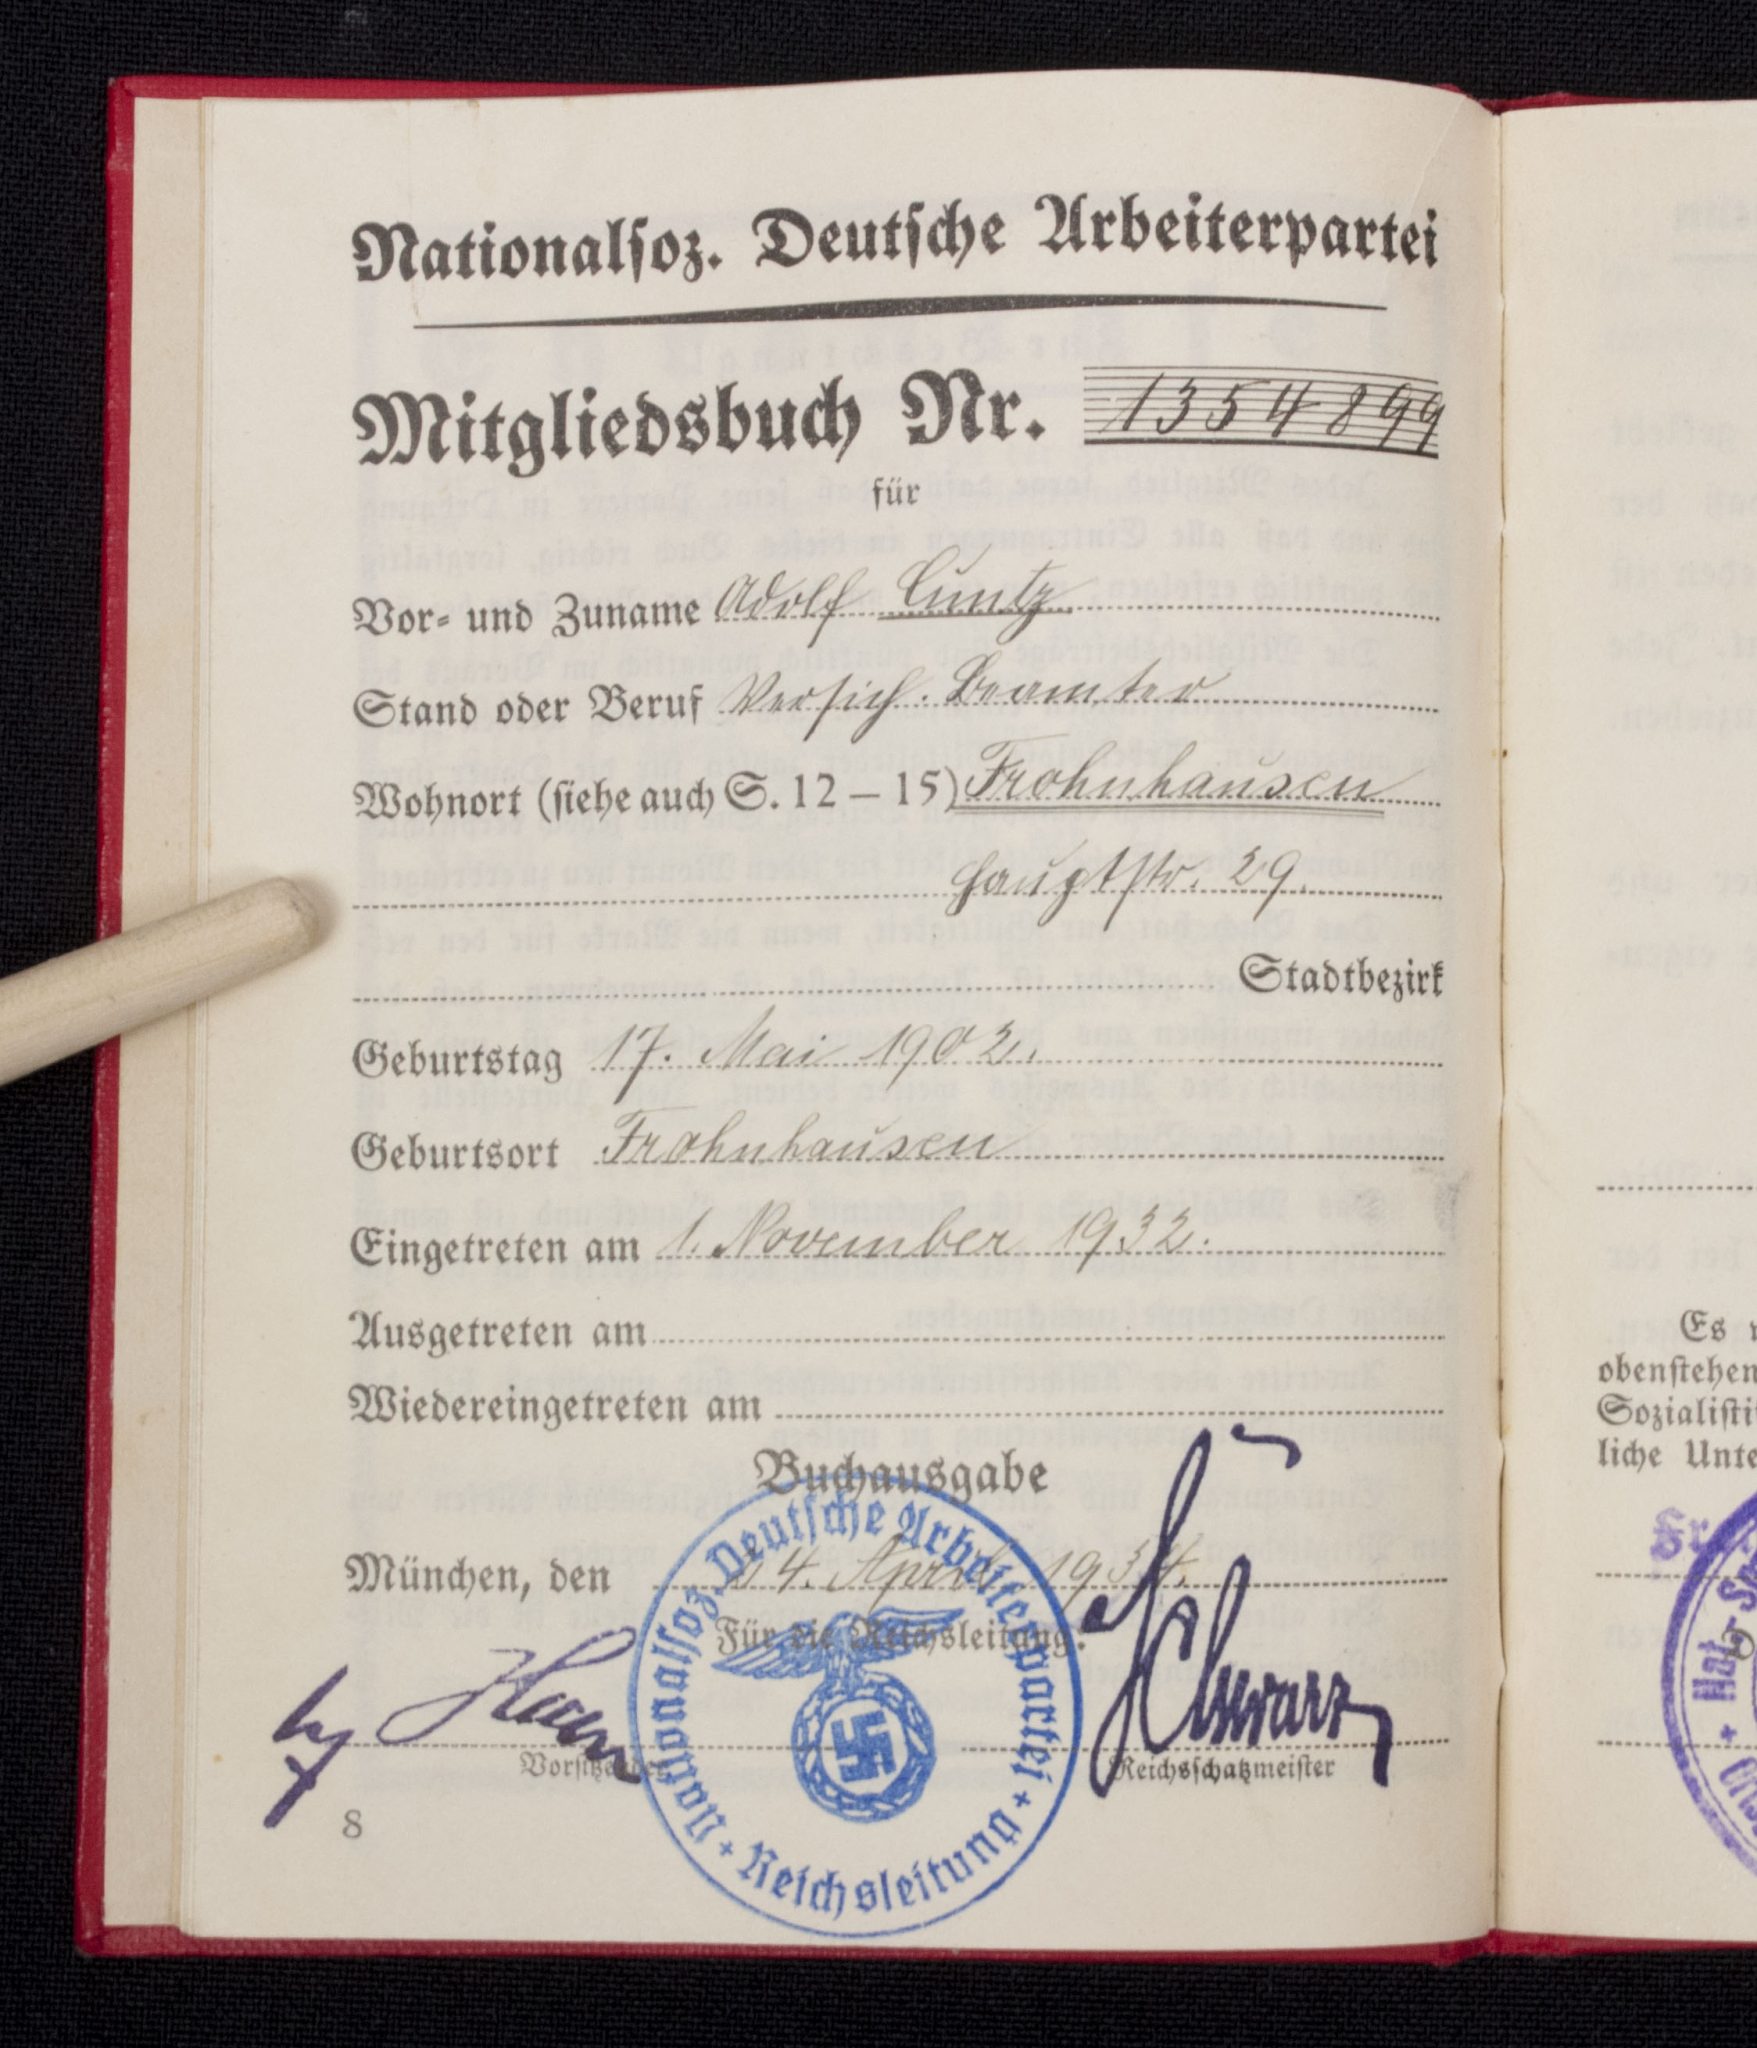 Nationalsoz. Deutsche Arbeiterpartei
Mitgliedsbuch Nr. 1354899
für
Vor- und Zuname Adolf Cuntz
Stand oder Beruf Versich. Beamter
Wohnort (siehe auch S. 12 – 15) Frohnhausen
Hauptstr. 29.
Stadtbezirk
Geburtstag 17. Mai 1902.
Geburtsort Frohnhausen
Eingetreten am 1. November 1932.
Ausgetreten am
Wiedereingetreten am
Buchausgabe
München, den 4. April 1934.
Für die Reichsleitung:
Schwarz
Vorsitzender
Reichsschatzmeister
Nationalsoz. Deutsche Arbeiterpartei + Reichsleitung +
8
Es
obenstehen
Sozialisti
liche Unte
Fr
Nat. So